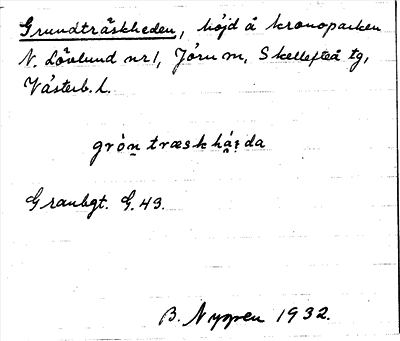 Grundträskheden, höjd å kronoparken
N. Lövlund nr 1, Jörn sn, Skellefteå tg,
Västerb. l.
grón træsk há̤i̯da
Granbgt. G. 43.
B. Nyman 1932.